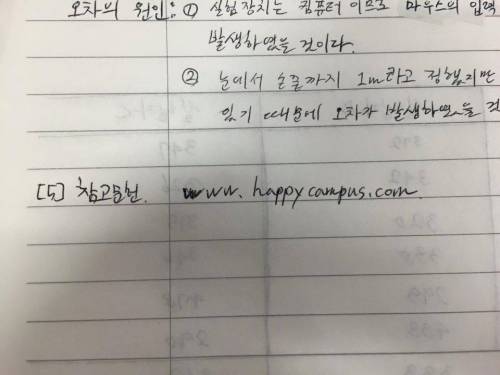 오차의 원인: ① 실험장치는 컴퓨터 이므로 마우스의 입력
발생하였을 것이다.
② 눈에서 손끝까지 1m라고 정했지만
있기 때문에 오차가 발생하였을 것
[5] 참고문헌. www.happycampus.com.